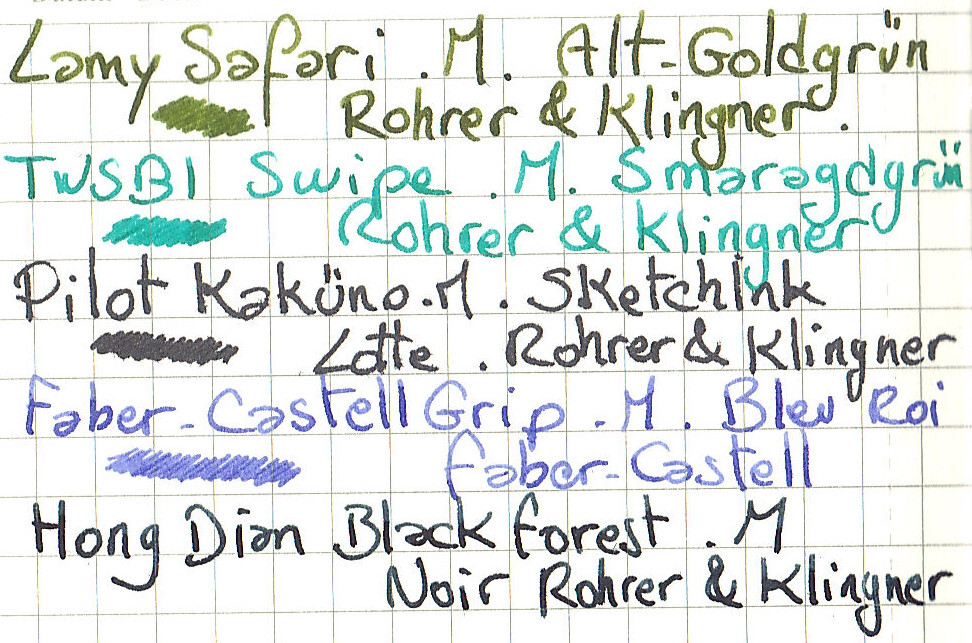 Lamy Safari . M. Alt-Goldgrün
Rohrer & Klingner .
TWSBI Swipe . M. Smaragdgrün
Rohrer & Klingner
Pilot Kaküno . M . SKetchInk
Lotte . Rohrer & Klingner
Faber-Castell Grip . M . Bleu Roi
Faber-Castell
Hong Dian Black Forest . M
Noir Rohrer & Klingner